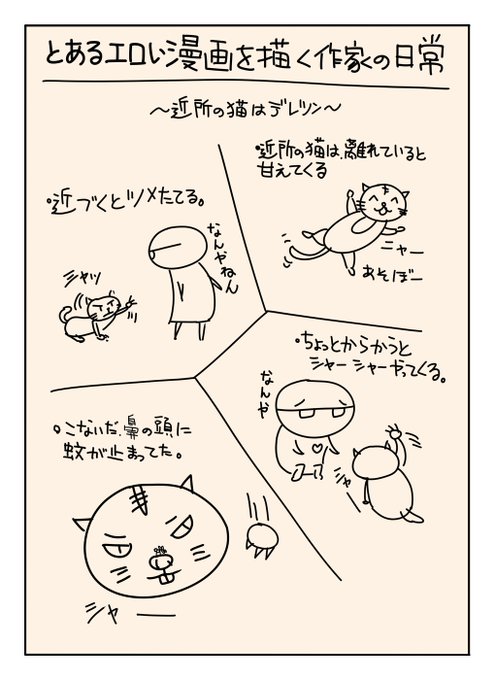 とあるエロい漫画を描く作家の日常
～近所の猫はデレツン～
・近所の猫は、離れていると
甘えてくる
ニャー
あそぼー
・近づくとツメたてる。
なんやねん
シャッ
・ちょっとからかうと
シャーシャーやってくる。
なんや
シャー
。こないだ、鼻の頭に
蚊が止まってた。
シャー